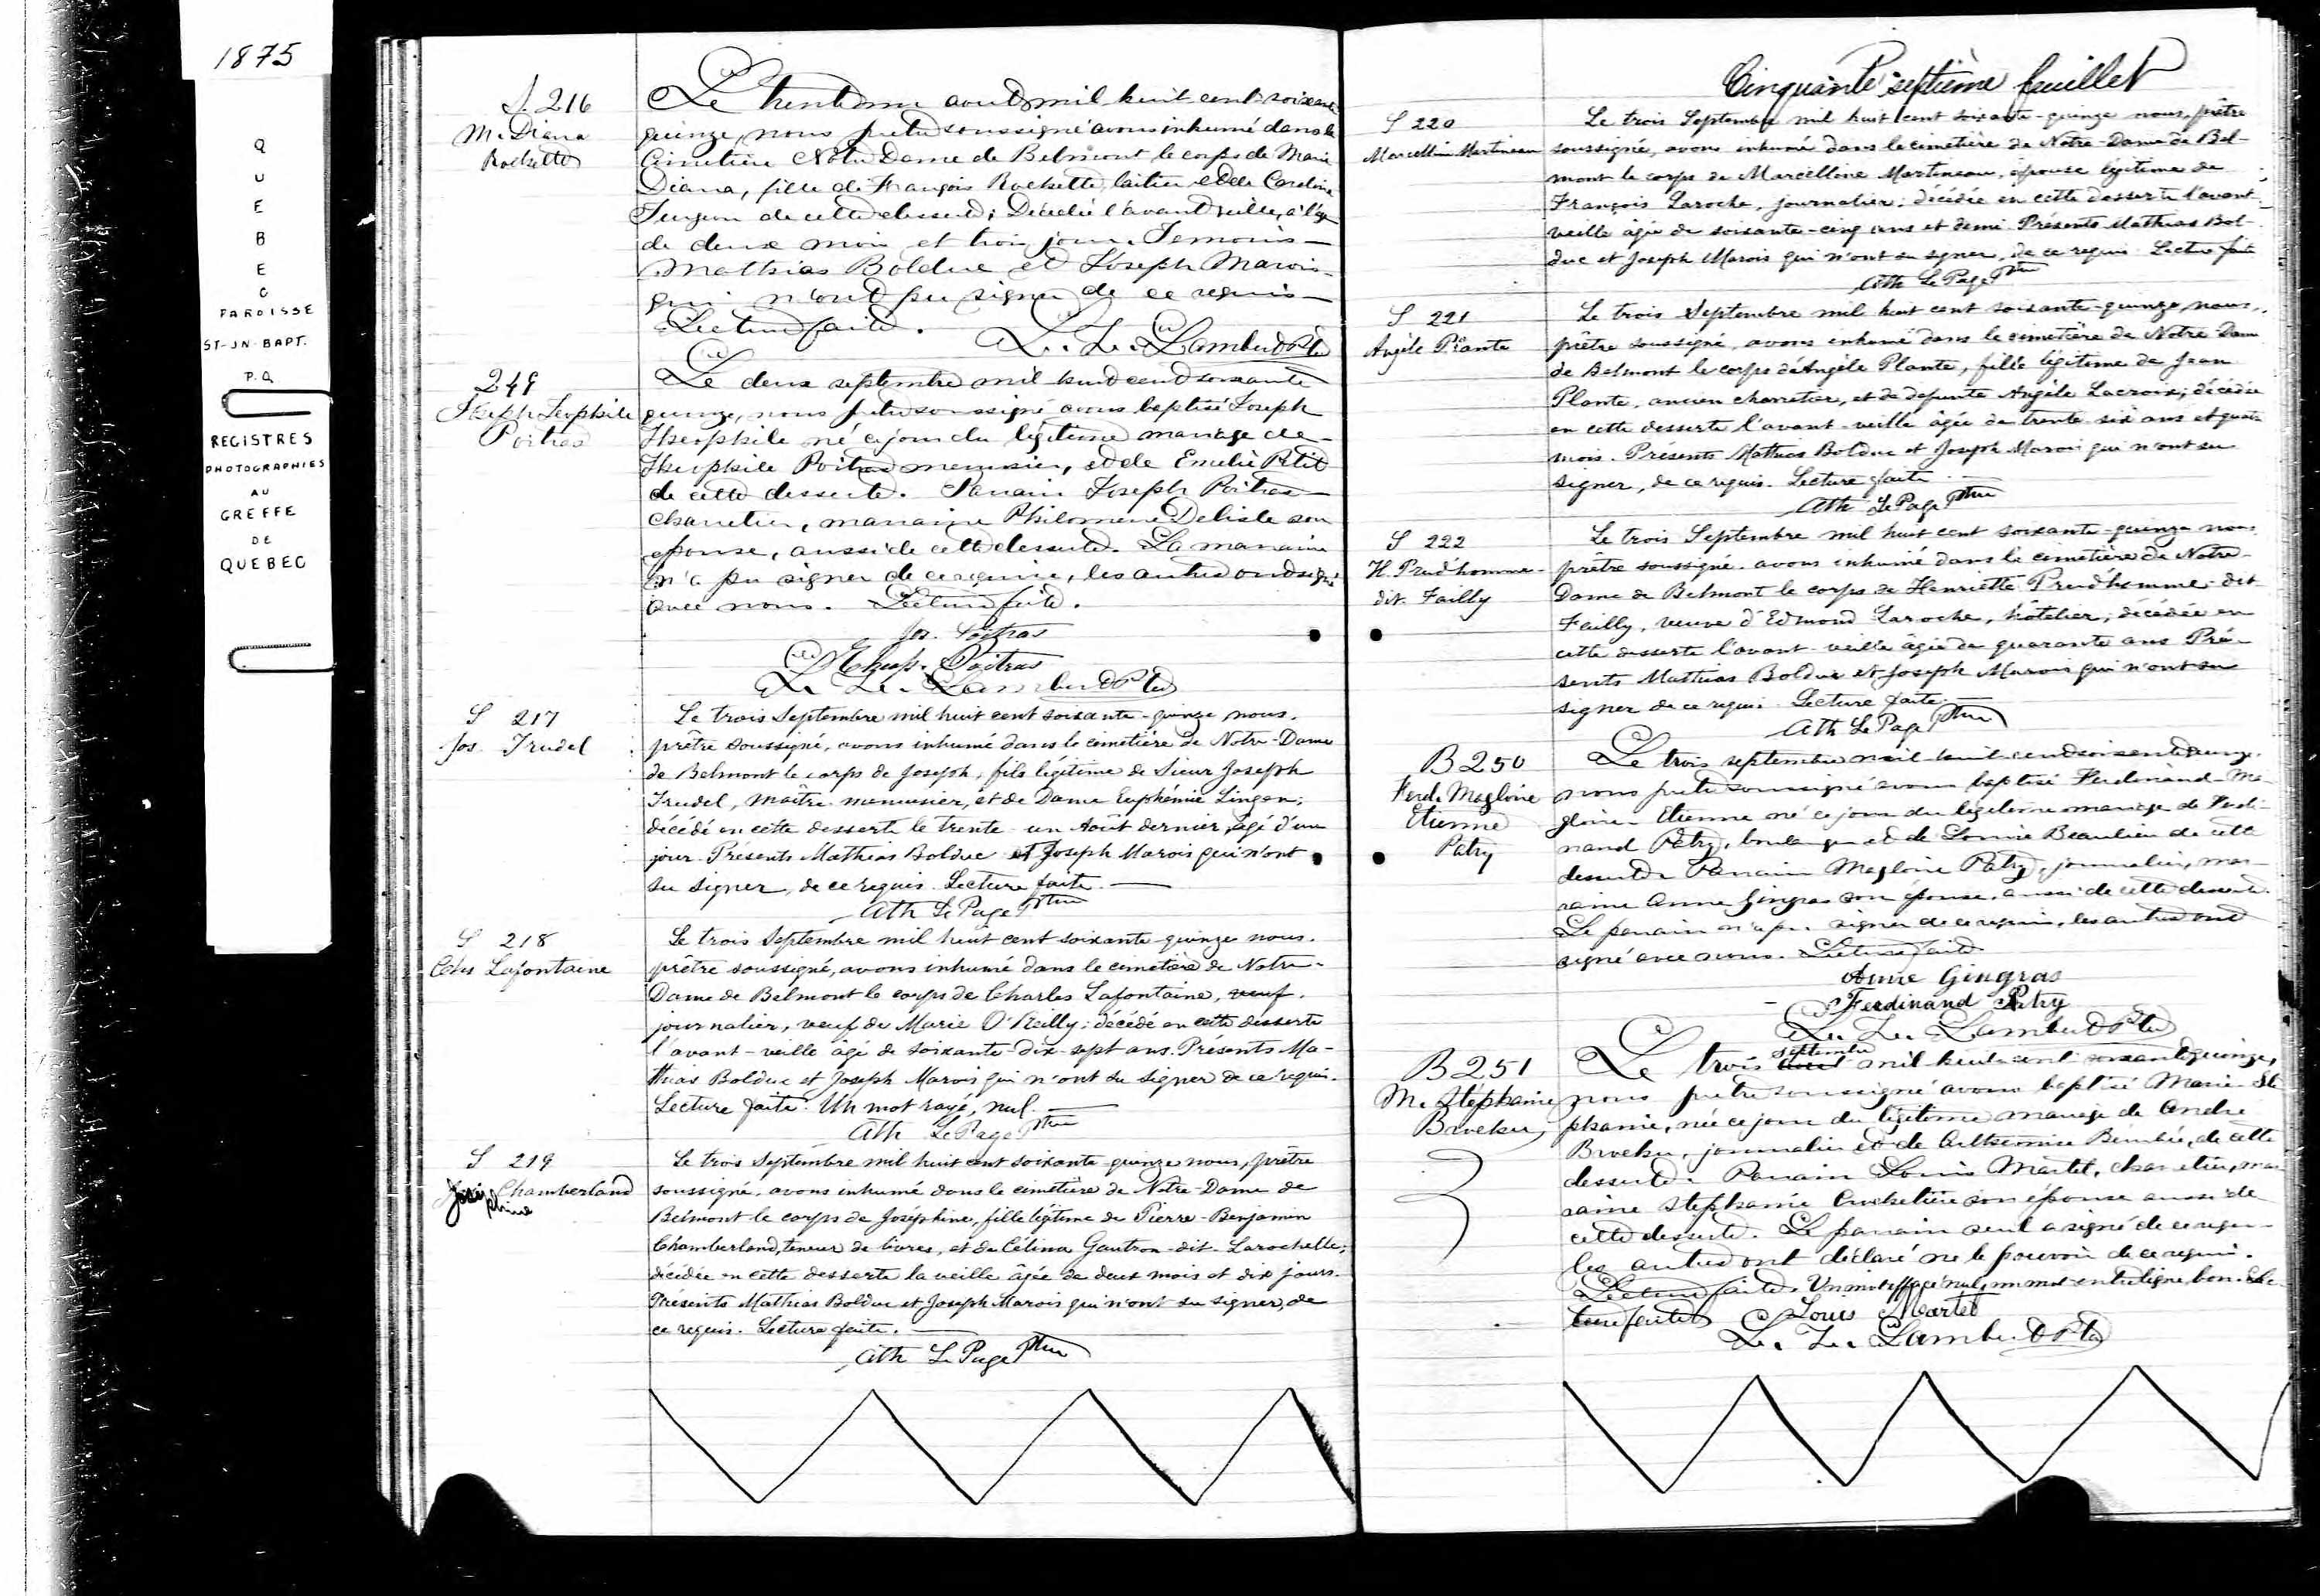 1875
QUEBEC
PAROISSE
ST-JN-BAPT.
P.Q.
REGISTRES
PHOTOGRAPHIES
AU
GREFFE
DE
QUEBEC
S. 216
M. Diana
Rochette
Le trente un aout mil huit cent soixante
quinze, nous pretre soussigné avons inhumé dans le
Cimetière Notre Dame de Belmont le corps de Marie
Diana, fille de François Rochette, laitier et de Caroline
Turgeon de cette desserte; Décédée l'avant veille, à l'âge
de deux mois et trois jours. Temoins
Mathias Bolduc et Joseph Marois
qui n'ont pu signer de ce requis
Lecture faite.
L. Z. Lambert Ptre
249
Joseph Théophile
Poitras
Le deux septembre mil huit cent soixante
quinze, nous pretre soussigné avons baptisé Joseph
Théophile né ce jour du légitime mariage de
Théophile Poitras menuisier, et de Emelie Petit
de cette desserte. Parrain Joseph Poitras
charretier, marraine Philomene Delisle son
epouse, aussi de cette desserte. La marraine
n'a pu signer de ce requise, les autres ont signé
avec nous. Lecture faite.
Jos. Poitras
Theop. Poitras
L. Z. Lambert Ptre
S 217
Jos Trudel
Le trois Septembre mil huit cent soixante-quinze nous,
prêtre soussigné, avons inhumé dans le cimetière de Notre-Dame
de Belmont le corps de Joseph, fils légitime de Sieur Joseph
Trudel, maître menuisier, et de Dame Euphémie Lingen;
décédé en cette desserte le trente-un Août dernier, âgé d'un
jour. Présents Mathias Bolduc et Joseph Marois qui n'ont
su signer, de ce requis. Lecture faite.
Ath LePage Ptre
S 218
Chs Lafontaine
Le trois Septembre mil huit cent soixante-quinze nous,
prêtre soussigné, avons inhumé dans le cimetière de Notre-
Dame de Belmont le corps de Charles Lafontaine, veuf,
journalier, veuf de Marie O'Reilly; décédé en cette desserte
l'avant-veille âgé de soixante-dix-sept ans. Présents Ma-
thias Bolduc et Joseph Marois qui n'ont su signer de ce requis.
Lecture faite. Un mot rayé, nul.
Ath LePage Ptre
S 219
Joséphine Chamberland
Le trois Septembre mil huit cent soixante-quinze nous, prêtre
soussigné, avons inhumé dans le cimetière de Notre-Dame de
Belmont le corps de Joséphine, fille légitime de Pierre-Benjamin
Chamberland, teneur de livres, et de Célina Gautron-dit-Larochelle;
décédée en cette desserte la veille âgée de deux mois et dix jours.
Présents Mathias Bolduc et Joseph Marois qui n'ont su signer, de
ce requis. Lecture faite.
Ath LePage Ptre
Cinquante septième feuillet
S 220
Marcelline Martineau
Le trois Septembre mil huit cent soixante-quinze nous, prêtre
soussigné, avons inhumé dans le cimetière de Notre-Dame de Bel-
mont le corps de Marcelline Martineau, épouse légitime de
François Laroche, journalier; décédée en cette desserte l'avant-
veille âgée de soixante-cinq ans et demi. Présents Mathias Bol-
duc et Joseph Marois qui n'ont su signer, de ce requis. Lecture faite
Ath LePage Ptre
S 221
Angèle Plante
Le trois Septembre mil huit cent soixante-quinze, nous,
prêtre soussigné, avons inhumé dans le cimetière de Notre Dame
de Belmont le corps d'Angèle Plante, fille légitime de Jean
Plante, ancien charretier, et de défunte Angèle Lacroix; décédée
en cette desserte l'avant-veille âgée de trente-six ans et quatre
mois. Présents Mathias Bolduc et Joseph Marois qui n'ont su
signer, de ce requis. Lecture faite.
Ath LePage Ptre
S 222
H. Prud'homme-
dit-Failly
Le trois Septembre mil huit cent soixante-quinze nous
prêtre soussigné avons inhumé dans le cimetière de Notre-
Dame de Belmont le corps de Henriette Prud'homme-dit-
Failly, veuve d'Edmond Laroche, hotelier; décédée en
cette desserte l'avant-veille âgée de quarante ans. Pré-
sents Mathias Bolduc et Joseph Marois qui n'ont su
signer de ce requis. Lecture faite.
Ath LePage Ptre
B 250
Ferd. Magloire
Etienne
Patry
Le trois septembre mil huit cent soixante quinze
nous pretre soussigné avons baptisé Ferdinand-Ma-
gloire-Etienne né ce jour du légitime mariage de Ferdi-
nand Patry, boulanger et de Louise Beaulieu de cette
desserte. Parrain Magloire Patry, journalier, mar-
raine Anne Gingras son épouse, aussi de cette desserte.
Le parrain n'a pu signer de ce requis, les autres ont
signé avec nous. Lecture faite
Anne Gingras
Ferdinand Patry
L. Z. Lambert Ptre
B 251
M. Stéphanie
Brocku
Le trois septembre mil huit cent soixante quinze,
nous pretre soussigné avons baptisé Marie Sté-
phanie, née ce jour du légitime mariage de André
Brocku, journalier et de Arthemise Bernbée, de cette
desserte. Parrain Louis Martel, charretier, mar-
raine Stephanie son épouse aussi de
cette desserte. Le parrain seul a signé de ce requis
les autres ont déclaré ne le pouvoir de ce requis.
Lecture faite. Un mot effacé nul, un mot entre ligne bon. Lec-
ture faite
Louis Martel
L. Z. Lambert Ptre